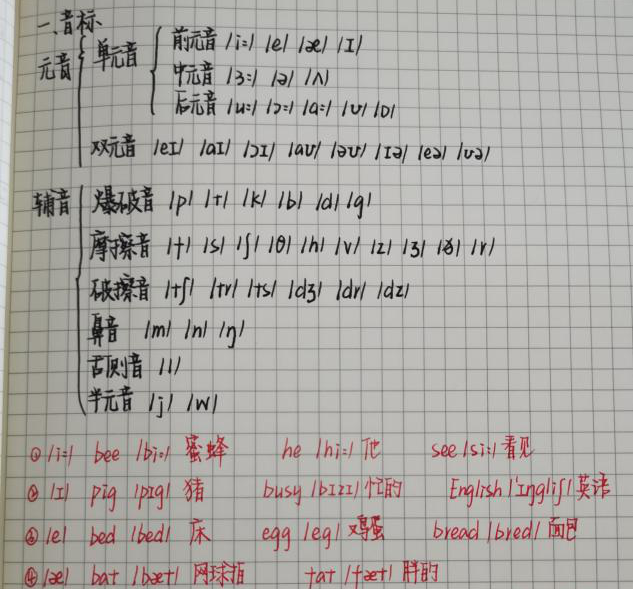 一、音标
元音 单元音 前元音 /i:/ /e/ /æ/ /ɪ/
中元音 /ɜ:/ /ə/ /ʌ/
后元音 /u:/ /ɔ:/ /ɑ:/ /ʊ/ /ɒ/
双元音 /eɪ/ /aɪ/ /ɔɪ/ /aʊ/ /əʊ/ /ɪə/ /eə/ /ʊə/
辅音 爆破音 /p/ /t/ /k/ /b/ /d/ /g/
摩擦音 /f/ /s/ /ʃ/ /θ/ /h/ /v/ /z/ /ʒ/ /ð/ /r/
破擦音 /tʃ/ /tr/ /ts/ /dʒ/ /dr/ /dz/
鼻音 /m/ /n/ /ŋ/
舌侧音 /l/
半元音 /j/ /w/
① /i:/ bee /bi:/ 蜜蜂 he /hi:/ 他 see /si:/ 看见
② /ɪ/ pig /pɪg/ 猪 busy /bɪzɪ/ 忙的 English /'ɪnglɪʃ/ 英语
③ /e/ bed /bed/ 床 egg /eg/ 鸡蛋 bread /bred/ 面包
④ /æ/ bat /bæt/ 网球拍 fat /fæt/ 胖的